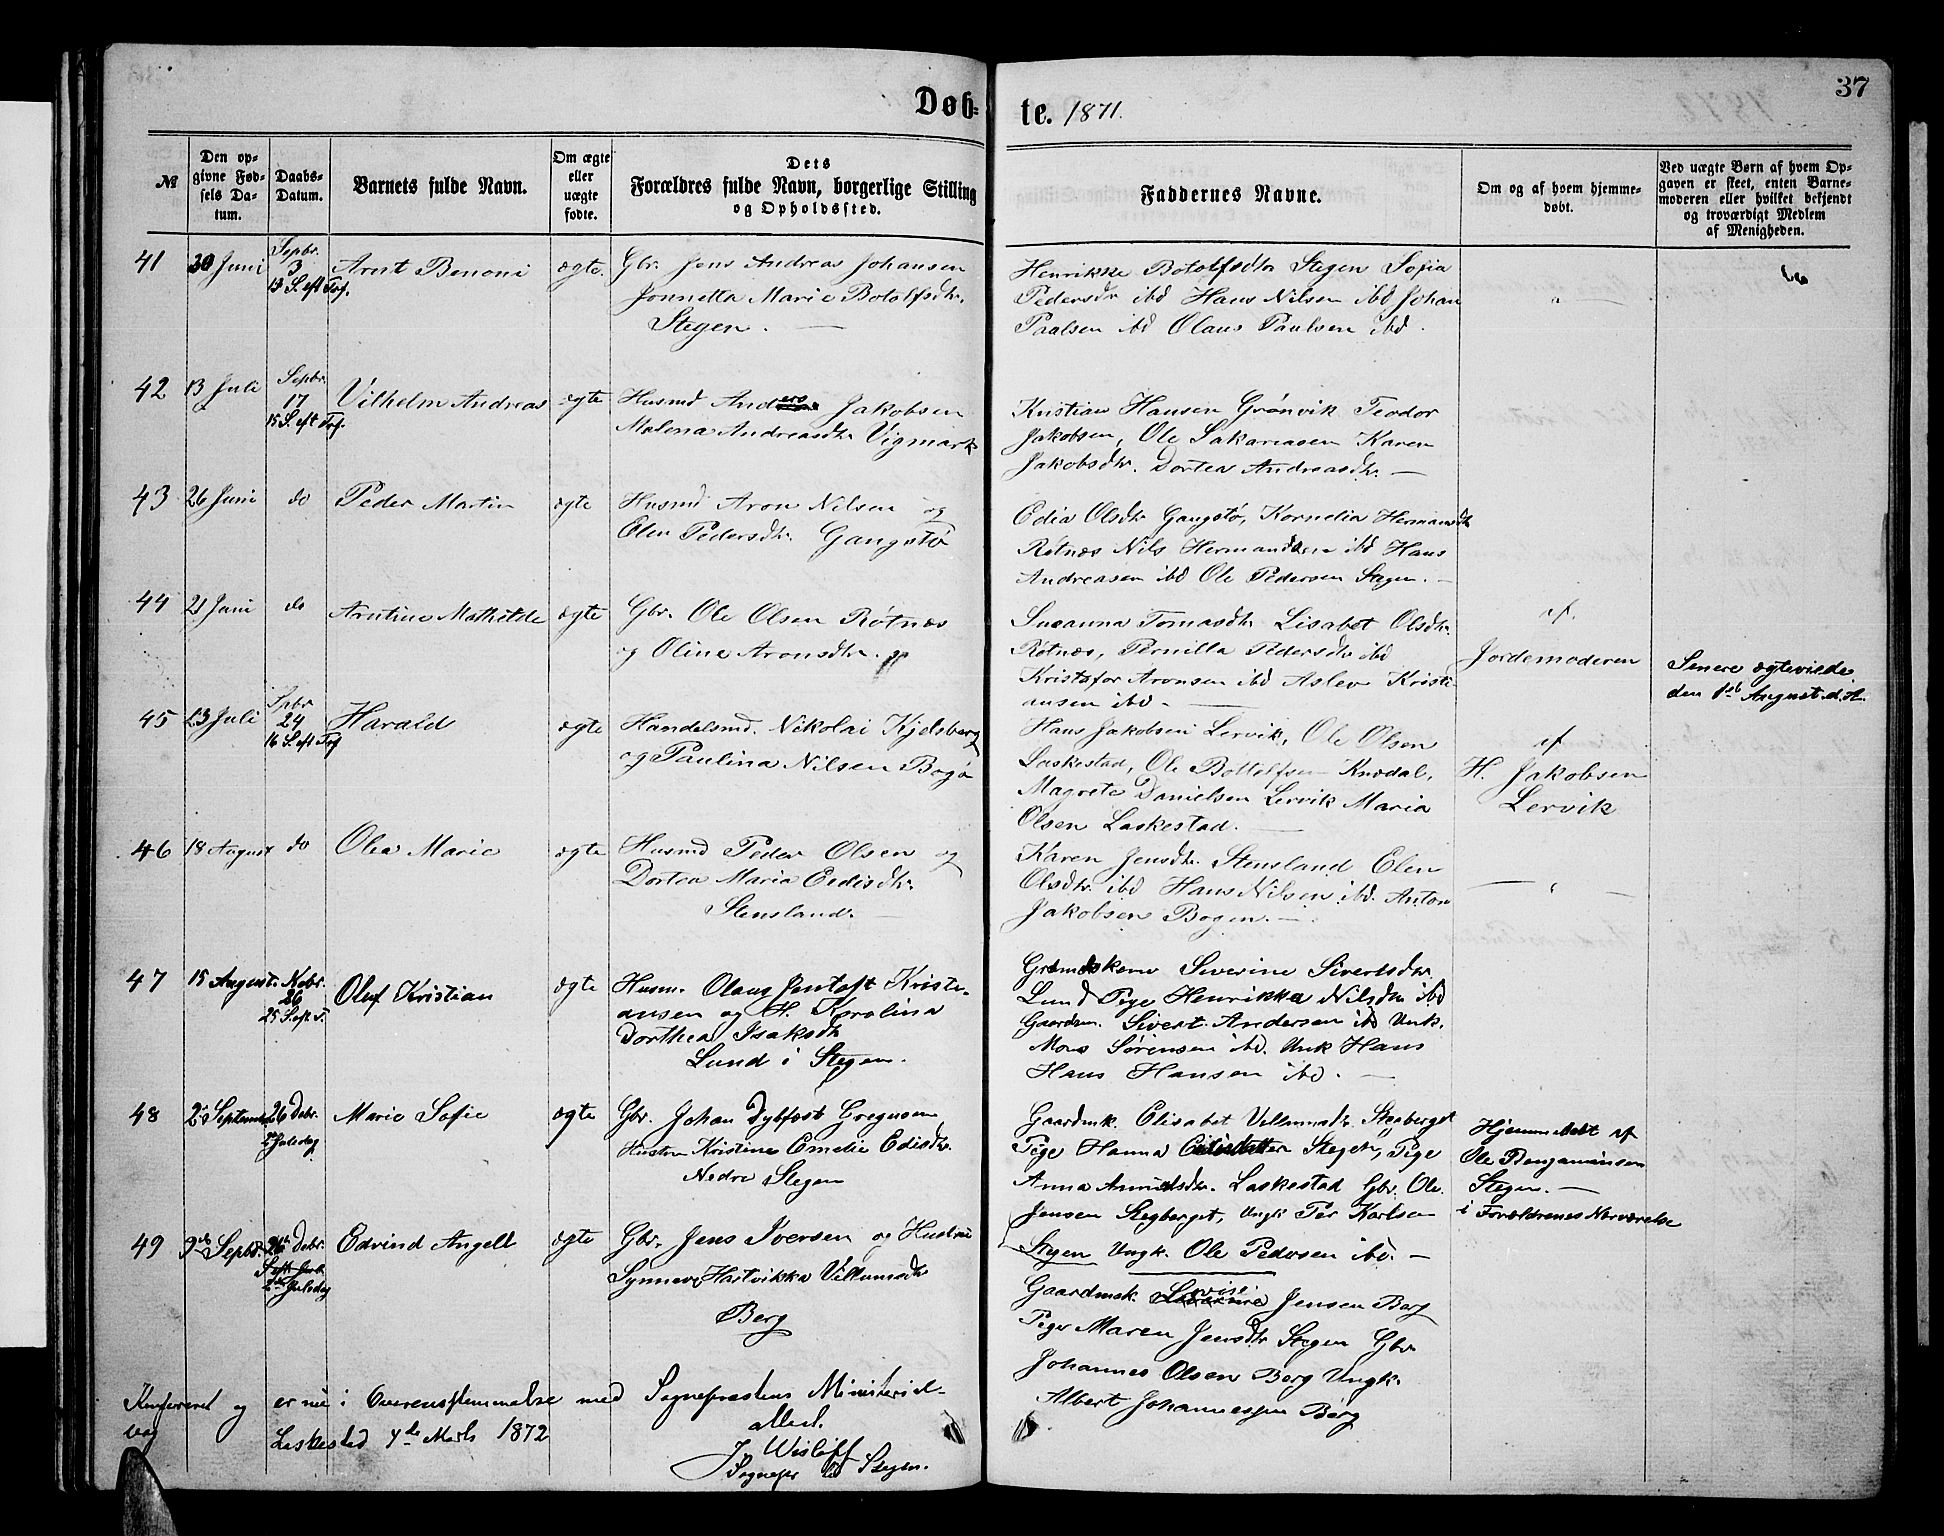 37
Døb-
te. 1871.
№
Den op-
givne Fød-
sels Da-
tum.
Daabs-
Datum.
Barnets fulde Navn.
Om ægte
eller
uægte
fødte.
Dets
Forældres fulde Navn, borgerlige Stilling
og Opholdssted.
Faddernes Navne.
Om og af hvem hjemme-
døbt.
Ved uægte Børn af hvem Op-
gaven er skeet, enten Barne-
moderen eller hvilket bekjendt
og troværdigt Medlem
af Menigheden.
41
30 Juni
Sepbr.
3
13 S. eft Tref.
Arnt Benoni
ægte.
Gbr. Jens Andreas Johansen
Jonnetta Marie Botolfsdtr.
Stegen. —
Henrikke Botolfsdtr Stegen Sofia
Pedersdtr ibd Hans Nilsen ibd Johan
Paalsen ibd Olaus Paulsen ibd.
42
13 Juli
Sepbr.
17
15 S. eft Tref.
Vilhelm Andreas
ægte
Husmd Anders Jakobsen
Malena Andreasdtr Vigmark
Kristian Hansen Grønvik Teodor
Jakobsen, Ole Sakariasen Karen
Jakobsdtr. Dortea Andreasdtr. —
43
26 Juni
do
Peder Martin
ægte
Husmd Aron Nilsen og
Elen Pedersdtr. Gangstø
Edia Olsdtr Gangstø, Kornelia Hermansdtr
Røtnæs Nils Hermandsen ibd Hans
Andreasen ibd Ole Pedersen Stegen. —
44
21 Juni
do
Arntine Mathilde
ægte
Gbr. Ole Olsen Røtnæs
og Oline Aronsdtr.
Susanna Tomasdtr Lisabet Olsdtr.
Røtnæs, Pernilla Pedersdtr ibd
Kristafor Aronsen ibd Aslev Kristi-
ansen ibd. —
af.
Jordemoderen
Senere ægteviede
den 1ste August d. A.
45
23 Juli
Spbr
24
16 S. eft Tref
Harald
ægte
Handelsmd. Nikolai Kjelsberg
og Paulina Nilsen Bogø
Hans Jakobsen Lervik, Ole Olsen
Laskestad, Ole Bottolfsen Knædal,
Magrete Danielsen Lervik Maria
Olsen Laskestad. —
af
H. Jakobsen
Lervik
46
18 August
do
Olea Marie
ægte
Husmd Peder Olsen og
Dortea Maria Eedisdtr
Stensland. —
Karen Jensdtr. Stensland Elen
Olsdtr ibd Hans Nilsen ibd. Anton
Jakobsen Bogen. —
47
15 August.
Nobr.
26
25 S. eft T.
Oluf Kristian
ægte
Husm. Olaus Jentoft Kristi-
ansen og H. Karolina
Dorthea Isaksdtr
Lund i Stegen.
Severine Sivertsdtr.
Lund Pige Henrikka Nilsdtr ibd
Gaardm. Sivert Andersen ibd Unk.
Mons Sørensen ibd. Unk Hans
Hans Hansen ibd. —
48
2 September
26 Debr.
2den Juledag
Marie Sofie
ægte
Gbr. Johan Dybfest Gregusen
Hustru Kristine Emelie Edisdtr.
Nedre Stegen
Gaardmk. Elisabet Villumsdtr. Stegberget
Pige Hanna Edisdatter Stegen, Pige
Anna Arntsdtr. Laskestad Gbr. Ole
Jensen Stegberget, Ungk Per Karlsen
Stegen Ungk. Ole Pedersen ibd. —
Hjemmedøbt af
Ole Bengaminsen
Stegen. —
i Forældrenes Nærværelse
49
9de Sepbr.
26 Debr.
2den Juledag
Edvind Angell
ægte
Gbr. Jens Iversen og Hustru
Synneve Hartvikka Villumsdtr
Berg
Gaardmsk. Lovise Jensen Berg
Pige Maren Jensdtr Stegen Gbr
Johannes Olsen Berg Ungk.
Albert Johannessen Berg
Konfereret og er nu i Overensstemmelse med Sognepræstens Ministerial-
bog
attest.
Laskestad 4de Marts 1872
J Wisløff
Sognepr til Stegen.